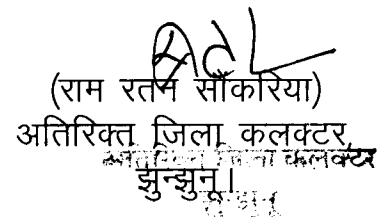 (राम रतन सौंकरिया)
अतिरिक्त जिला कलक्टर,
अतिरिक्त जिला कलक्टर
झुन्झुनू।
झुन्झुनू